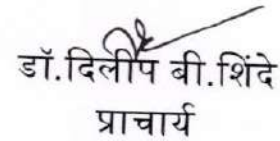 डॉ.दिलीप बी.शिंदे
प्राचार्य